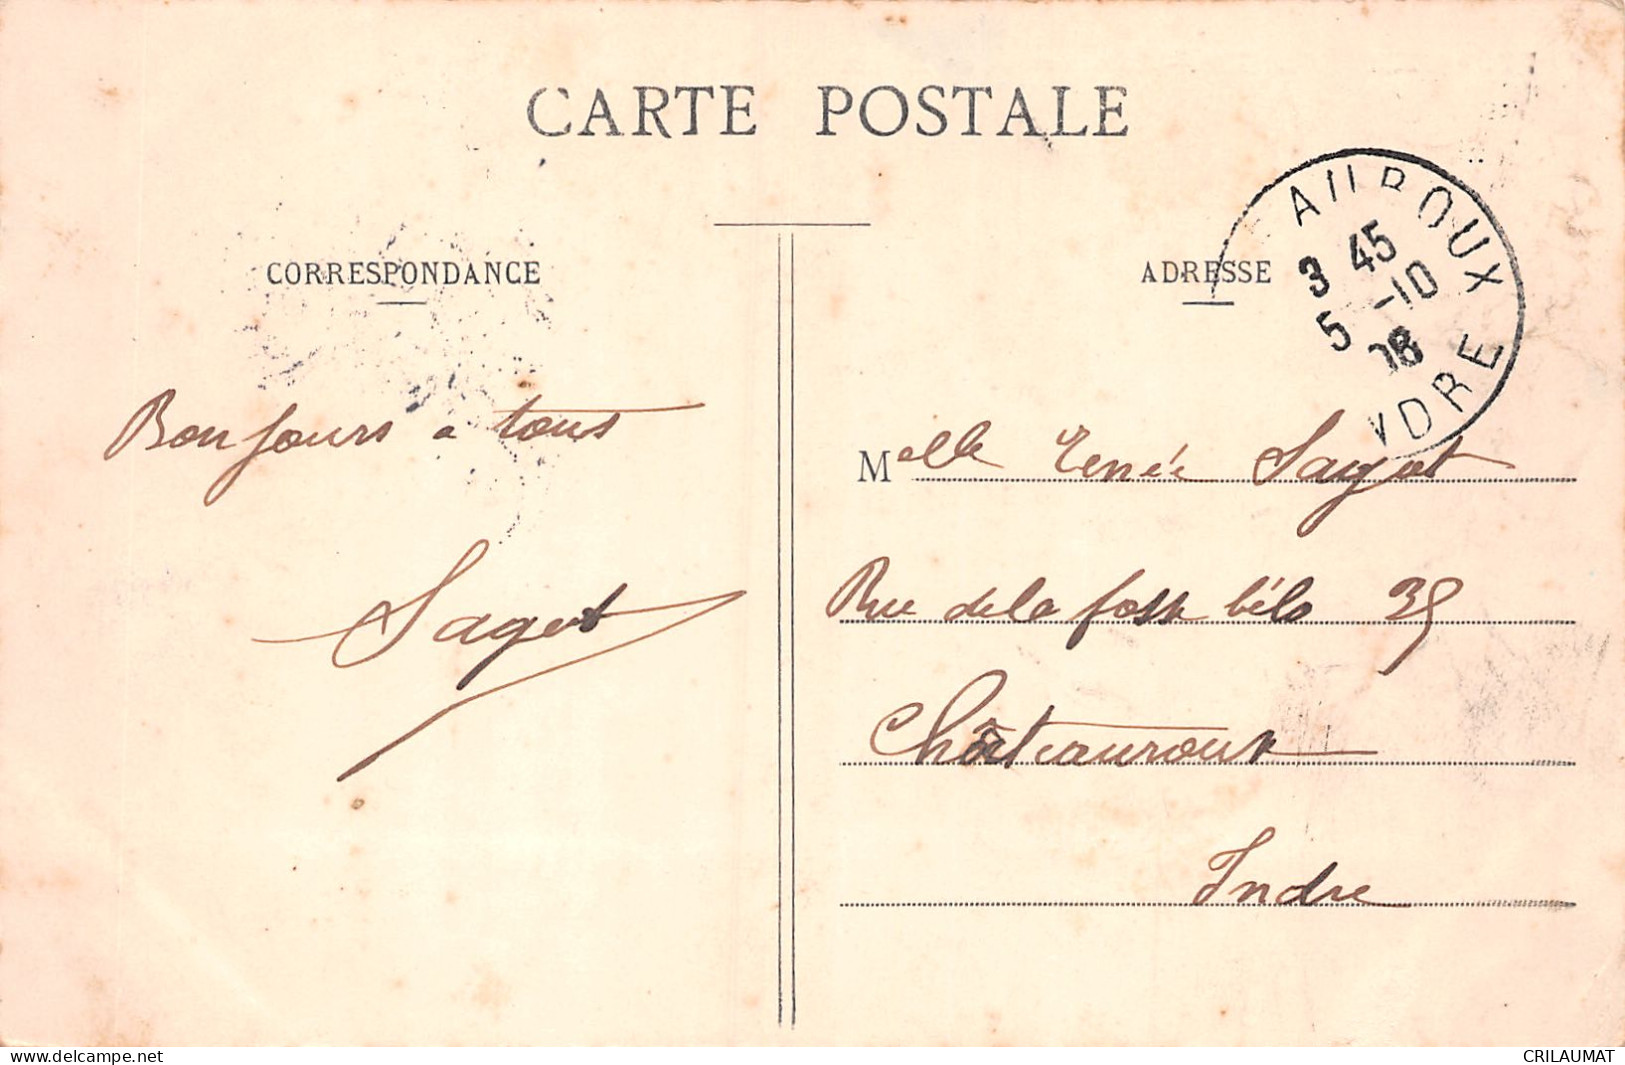 CARTE POSTALE
CORRESPONDANCE
ADRESSE
AUROUX
3 45
5 -10
08
NDRE
Bonjours a tous
Sagot
Melle Renée Sagot
Rue de la
35
Châteauroux
Indre
www.delcampe.net
CRILAUMAT